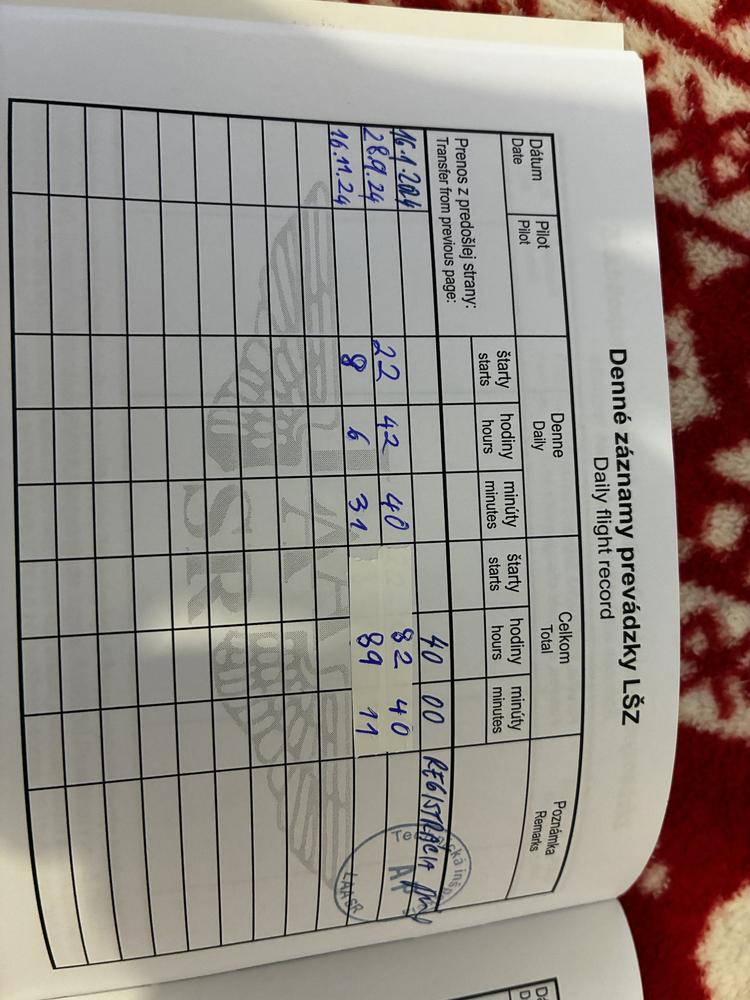 Denné záznamy prevádzky LŠZ
Daily flight record
Dátum Pilot Denne Celkom Poznámka
Date Pilot Daily Total Remarks
štarty hodiny minúty štarty hodiny minúty
starts hours minutes starts hours minutes
Prenos z predošlej strany:
Transfer from previous page:
16.1.2024 40 00 REGISTRÁCIA
28.9.24 22 42 40 82 40
16.11.24 8 6 31 89 11
Technická inšp
LAA SR
LAA
SR